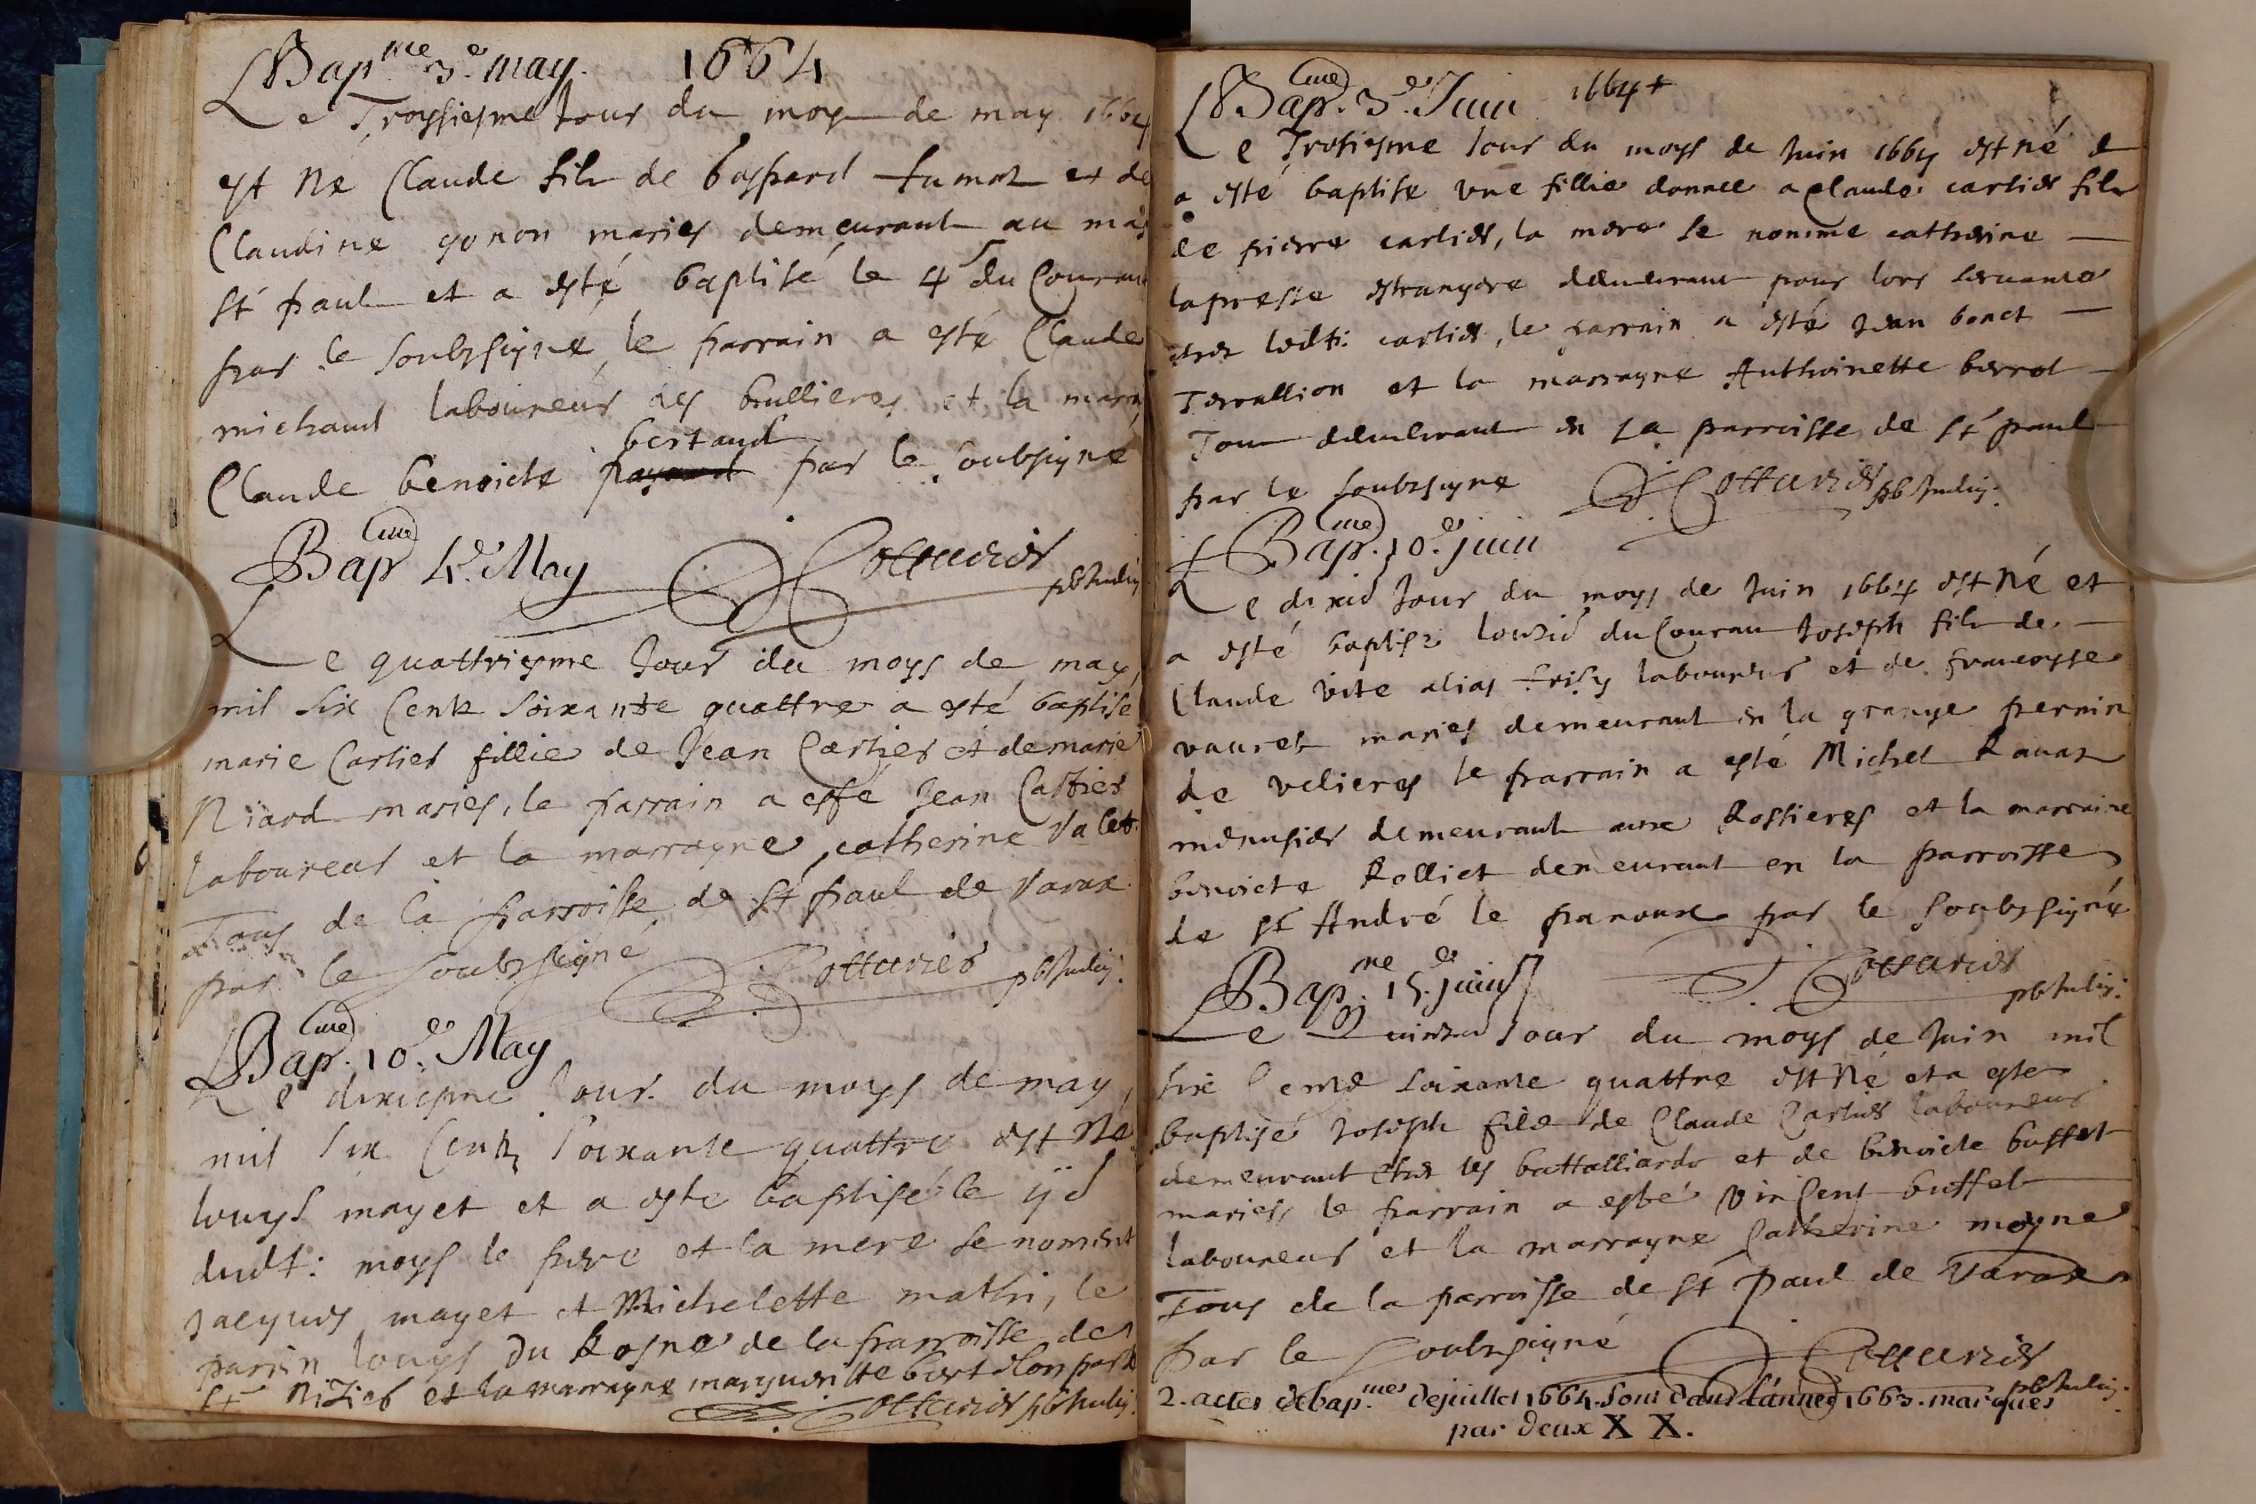 Bap.me 3.e may. 1664
Le Troysiesme Jour du moys de may 1664
est né Claude fils de Gaspard fumat et de
Claudine gonon maries demeurant au mas
St paul et a esté baptisé le 4 du Courant
par le soubzsigné, le parrain a esté Claude
michaud laboureur des brullieres et la marr
bertaud
Claude benoicte par le soubsigné
Bap.me 4.e May Cottarier
Le quattriesme Jour du moys de may,
mil six Centz soixante quattre a esté baptisé
marie Cartier fillie de Jean Cartier et de marie
Niard maries, le parrain a esté Jean Cartier
laboureur et la marrayne, catherine Valet
Tous de la parroisse de St paul de Varax
par le soubzsigné Cottarier
Bap.me 10.e May
Le dixiesme Jour du moys de may,
mil six Centz soixante quattre est né
louys mayet et a esté baptisé le
dudt: moys le pere et la mere se noment
Jacques mayet et Michelette mathi, le
parrin louys Du Rosne de la parroisse de
St Nizier et la marrayne margueritte
Cottarier
Bap.me 3.e Juin 1664+
Le Troisiesme Jour du moys de Juin 1664 est né et
a esté baptise une fillie donnee a Claude cartier fils
de pierre cartier, la mere se nomme catherine —
lapresse estrangere demeurant pour lors servante
chez ledt: cartier, le parrain a esté Jean bonet —
Teraillion et la marrayne Anthoinette berrot —
Tous demeurant en la parroisse de St paul —
par le soubzsigne Cottarier
Bap.me 10.e juin
Le dixie Jour du moys de Juin 1664 est né et
a esté baptise du Courant Joseph fils de —
Claude vite alias laboureur et de francoysse
vauret maries demeurant en la grange perrin
de velieres le parrain a esté Michel Ravat
menusier demeurant aux Rossieres et la marraine
benoicte Rolliet demeurant en la parroisse
de St André le panoux par le soubzsigné
Bap.me 15.e juin Cottarier
Le Quinzie Jour du moys de Juin mil
six Centz soixante quattre est né et a esté
baptisé Joseph filz de Claude Cartier laboureur
demeurant chez les battalliards et de benoicte buffet
maries le parrain a esté Vincent buffet
laboureur et la marrayne Catherine moyne
Tous de la parroisse de St Paul de Varax
par le soubzsigné Cottarier
2. actes de bap.mes de juillet 1664. sont dans l'année 1663. marqués
par deux X X.